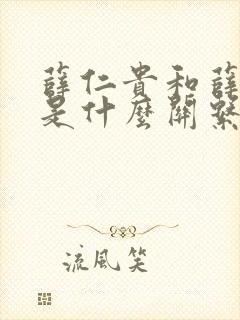 薛仁貴和薛
是什麼關繫
流風笑